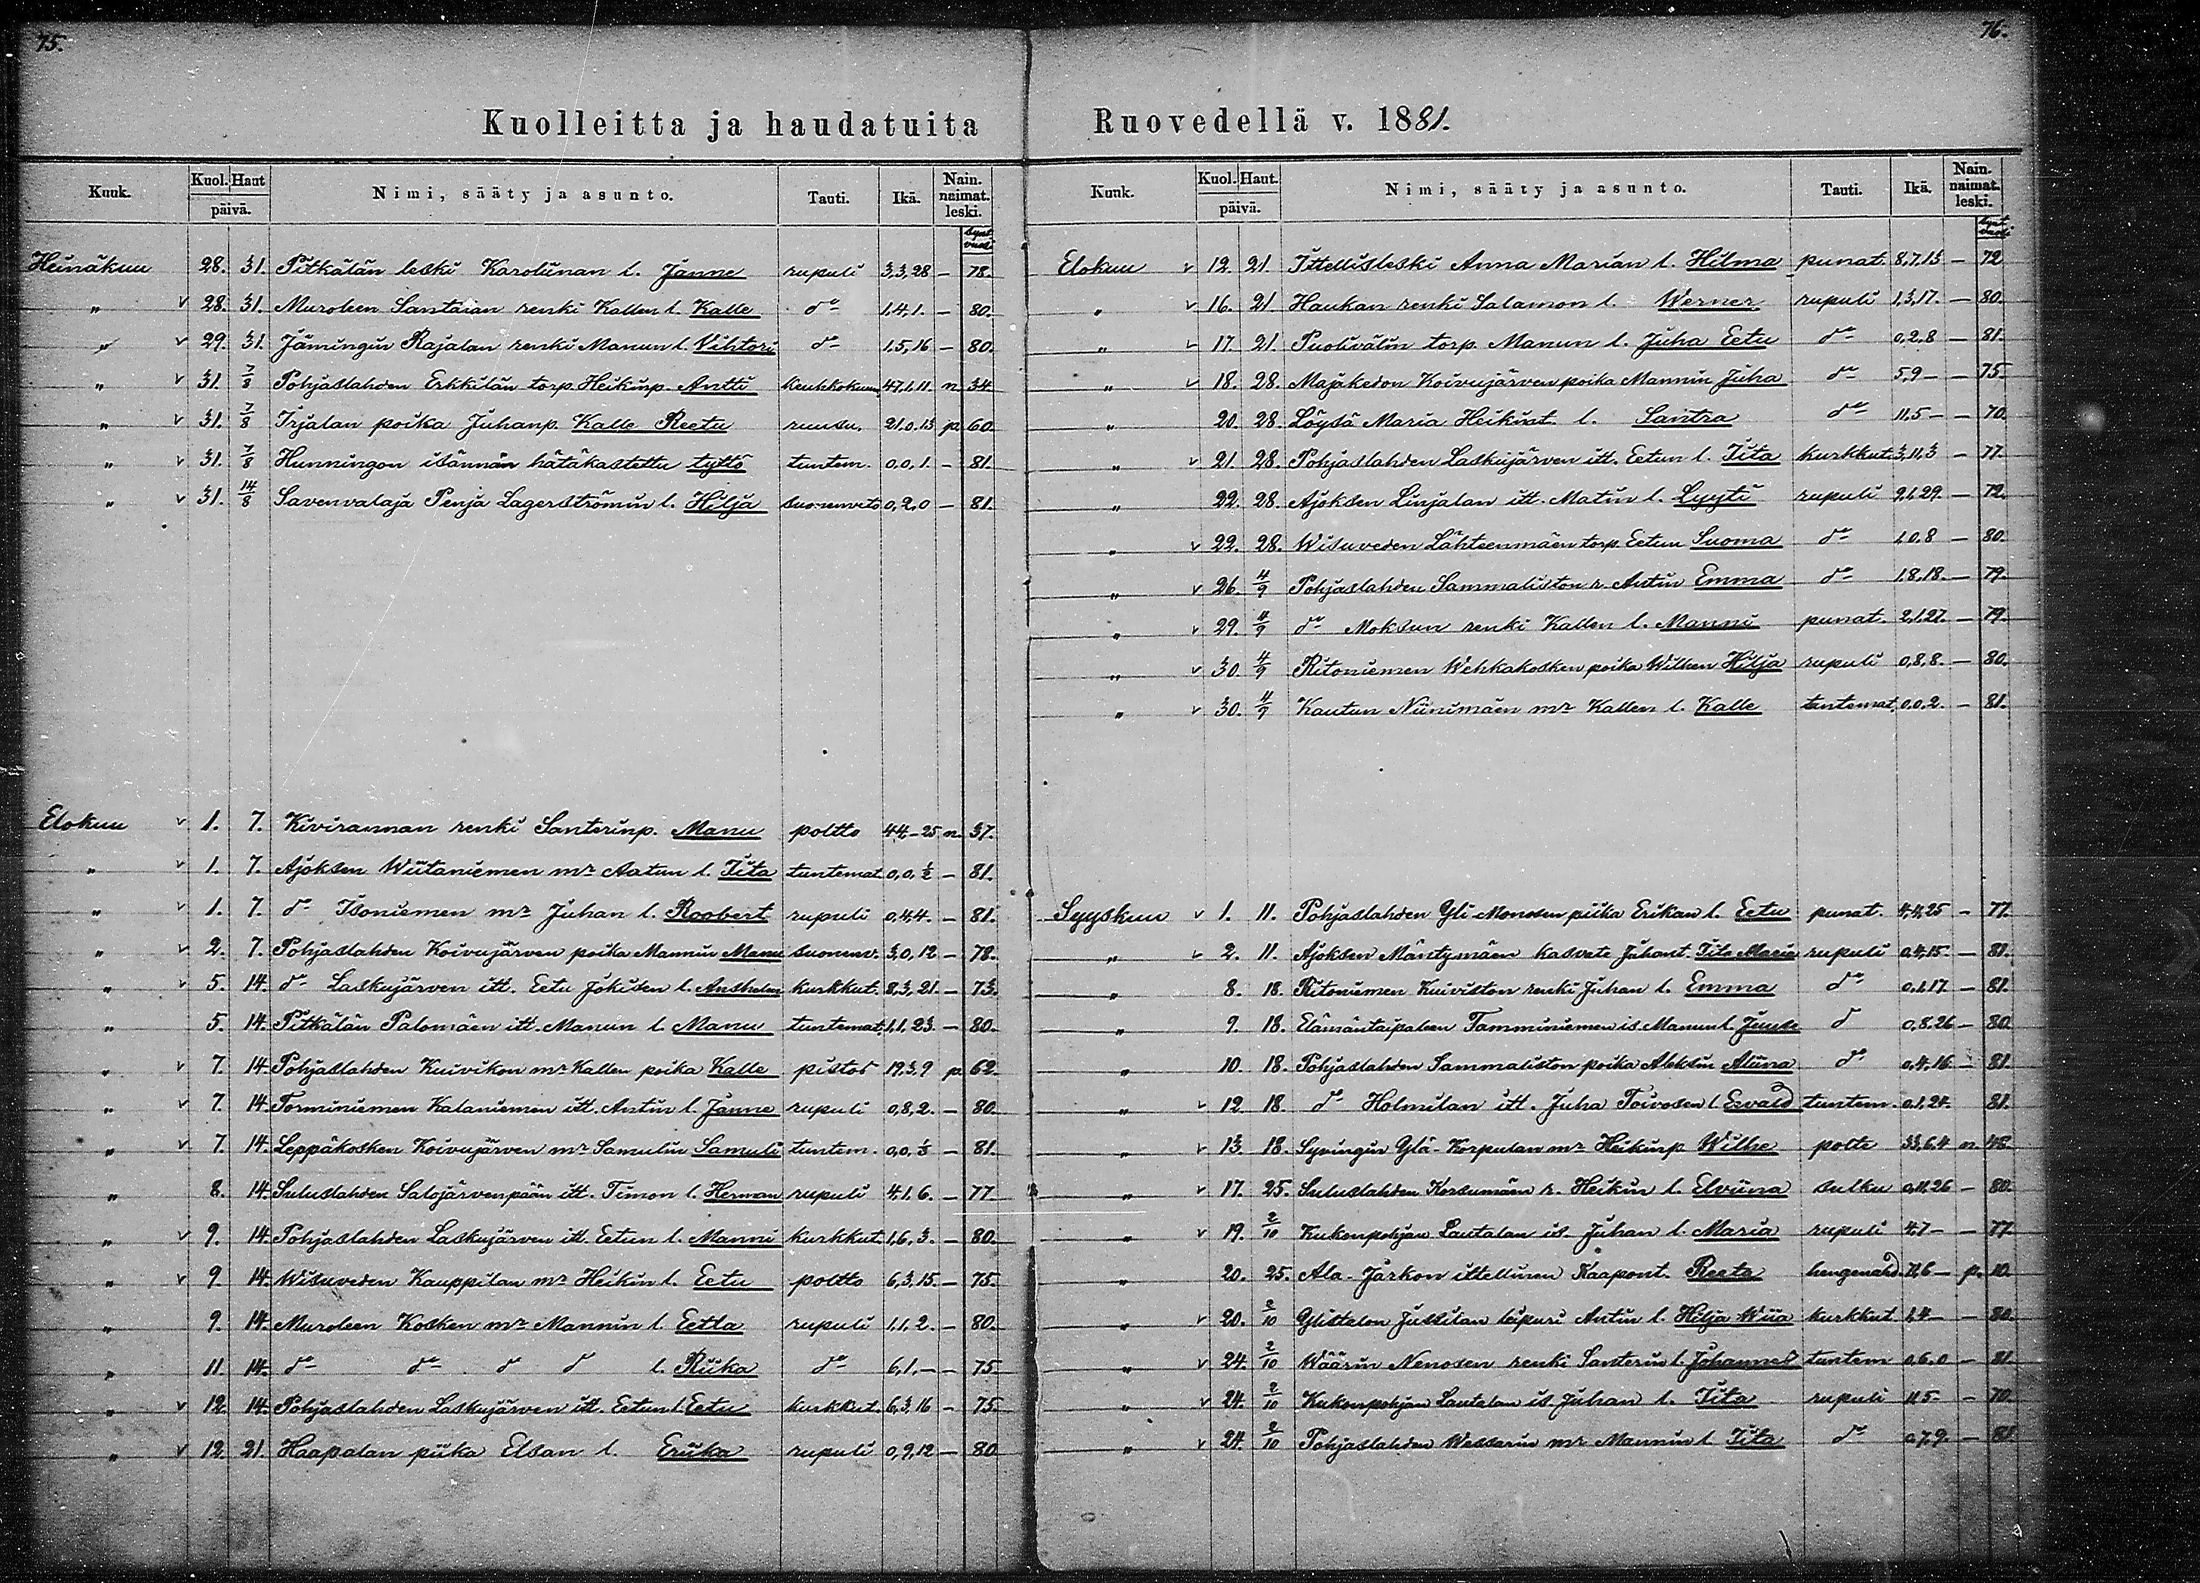 75.
Kuolleitta ja haudatuita
Kuuk. Kuol. Haut päivä. Nimi, sääty ja asunto. Tauti. Ikä. Nain. naimat. leski.
Synt. vuosi
Heinäkuu 28. 31. Pitkälän leski Karolinan l. Janne rupuli 3,3,28 – 78.
„ v 28. 31. Muroleen Santaian renki Kallen l. Kalle do 1,4,1. – 80.
„ v 29. 31. Jämingin Rajalan renki Manun l. Vihtori do 1,5,16 – 80.
„ v 31. 7/8 Pohjaslahden Erkkilän torp. Heikinp. Antti keuhkokuum. 47,1,11. n. 34
„ v 31. 7/8 Irjalan poika Juhanp. Kalle Reetu ruusu. 21,0,13 p. 60.
„ v 31. 7/8 Hunningon isännän hätäkastettu tyttö tuntem. 0,0,1 – 81.
„ v 31. 14/8 Savenvalaja Penja Lagerströmin l. Hilja suonenveto 0,2,0 – 81.
Elokuu v 1. 7. Kivirannan renki Santerinp. Manu poltto 44,–25 n. 37.
„ v 1. 7. Ajoksen Wiitaniemen mr Aatun l. Iita tuntemat. 0,0,½ – 81.
„ v 1. 7. do Isoniemen mr Juhan l. Roobert rupuli 0,4,4. – 81.
„ v 2. 7. Pohjaslahden Koivujärven poika Mannin Manu suonenv. 3,0,12 – 78.
„ v 5. 14. do Laskujärven itt. Eetu Jokisen l. Anshelm kurkkut. 8,3,21. – 73.
„ 5. 14. Pitkälän Palomäen itt. Manun l. Manu tuntemat. 1,1,23. – 80.
„ v 7. 14. Pohjaslahden Kuivikon mr Kallen poika Kalle pistos 19,3,9 p. 62.
„ v 7. 14. Torminiemen Kalaniemen itt. Antin l. Janne rupuli 0,8,2. – 80.
„ v 7. 14. Leppäkosken Koivujärven mr Samulin Samuli tuntem. 0,0,⅓ – 81.
„ 8. 14. Suluslahden Salojärvenpään itt. Timon l. Herman rupuli 4,1,6. – 77
„ v 9. 14. Pohjaslahden Laskujärven itt. Eetun l. Manni kurkkut. 1,6,3. – 80.
„ v 9. 14. Wisuveden Kauppilan mr Heikin l. Eetu poltto 6,3,15. – 75.
„ 9. 14. Muroleen Kosken mr Mannin l. Eetla rupuli 1,1,2. – 80.
„ 11. 14. do do d d l. Riika do 6,1,– – 75.
„ v 12. 14. Pohjaslahden Laskujärven itt. Eetun l. Eetu kurkkut. 6,3,16 – 75.
„ v 12. 21. Haapalan piika Elsan l. Eriika rupuli 0,9,12 – 80
76.
Ruovedellä v. 1881.
Kuuk. Kuol. Haut. päivä. Nimi, sääty ja asunto. Tauti. Ikä. Nain. naimat. leski.
Synt. vuosi
Elokuu v 12. 21. Ittellisleski Anna Marian l. Hilma punat. 8,7,13 – 72
„ v 16. 21 Haukan renki Salamon l. Werner rupuli 1,3,17. – 80.
„ v 17. 21. Puolivälin torp. Manun l. Juha Eetu do 0,2,8 – 81.
„ v 18. 28. Majakedon Koivujärven poika Mannin Juha do 5,9 – – 75.
„ 20. 28. Löysä Maria Heikint. l. Santra do 11,5 – – 70.
„ v 21. 28. Pohjaslahden Laskujärven itt. Eetun l. Iita kurkkut. 3,11,3 – 77.
„ 22. 28. Ajoksen Linjalan itt. Matin l. Lyyti rupuli 9,1,29. – 72.
„ v 22. 28. Wisuveden Lähteenmäen torp. Eetun Suoma do 1,0,8 – 80.
„ v 26. 4/9 Pohjaslahden Sammaliston r. Antin Emma do 1,8,18. – 79.
„ v 29. 4/9 do Moksun renki Kallen l. Manni punat. 2,1,27. – 79.
„ v 30. 4/9 Ritoniemen Wehkakosken poika Wilhen Hilja rupuli 0,8,8. – 80.
„ v 30. 4/9 Kautun Niinimäen mr Kallen l. Kalle tuntemat. 0,0,2. – 81.
Syyskuu v 1. 11. Pohjaslahden Yli Monosen piika Erikan l. Eetu punat. 4,4,25 – 77.
„ v 2. 11. Ajoksen Mäntymäen kasvate Juhont. Iita Maria rupuli 0,4,15. – 81.
„ 8. 18. Ritoniemen Kuiviston renki Juhan l. Emma do 0,1,17. – 81.
„ 9. 18. Elämäntaipaleen Tamminiemen is. Manun l. Juuse d 0,8,26 – 80.
„ 10. 18. Pohjaslahden Sammaliston poika Aleksin Aliina do 0,4,16 – 81.
„ v 12. 18. do Holmilan itt. Juha Toivosen l. Esvald tuntem. 0,1,24. 81.
„ v 13. 18. Syvingin Ylä-Korpulan mr Heikinp. Wilhe polte 33,6,4 n. 48.
„ v 17. 25. Suluslahden Korsumäen r. Heikin l. Elviina sulku 0,11,26 – 80.
„ v 19. 2/10 Kukonpohjan Lautalan is. Juhan l. Maria rupuli 4,7 – – 77.
„ 20. 25. Ala-Järkon ittellinen Kaapont. Reeta hengenahd. 71,6 – p. 10.
„ v 20. 2/10 Ylistalon Jussilan leipuri Antin l. Hilja Wiia kurkkut 1,4 – – 80.
„ v 24. 2/10 Wäärin Nenosen renki Santerin l. Johannes tuntem 0,6,0 – 81.
„ v 24. 2/10 Kukonpohjan Lautalan is. Juhan l. Iita rupuli 11,5 – – 70.
„ v 24. 2/10 Pohjaslahden Wessarin mr Mannin l. Iita do 0,7,9. – 81.